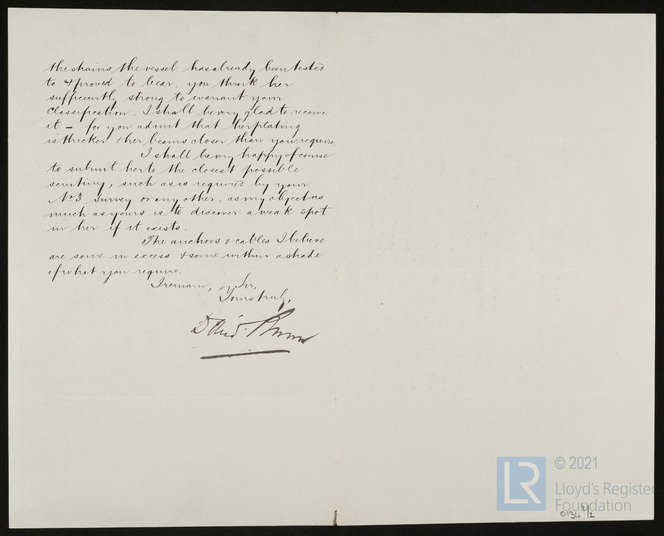 the strains the vessel has already been tested
to & proved to bear, you think her
sufficiently strong to warrant your
classification. I shall be very glad to receive
it - for you admit that her plating
is thicker & her beams closer than you require
I shall be very happy of course
to submit her to the closest possible
scrutiny, such as is required by your
No 3 survey or any other, as my object as
much as yours is to discover a weak spot
in her if it exists.
The anchors & cables I believe
are some in excess & some within a shade
of what you require.
I remain, Sir,
Yours truly,
LR
© 2021
Lloyd's Register
Foundation
2/2